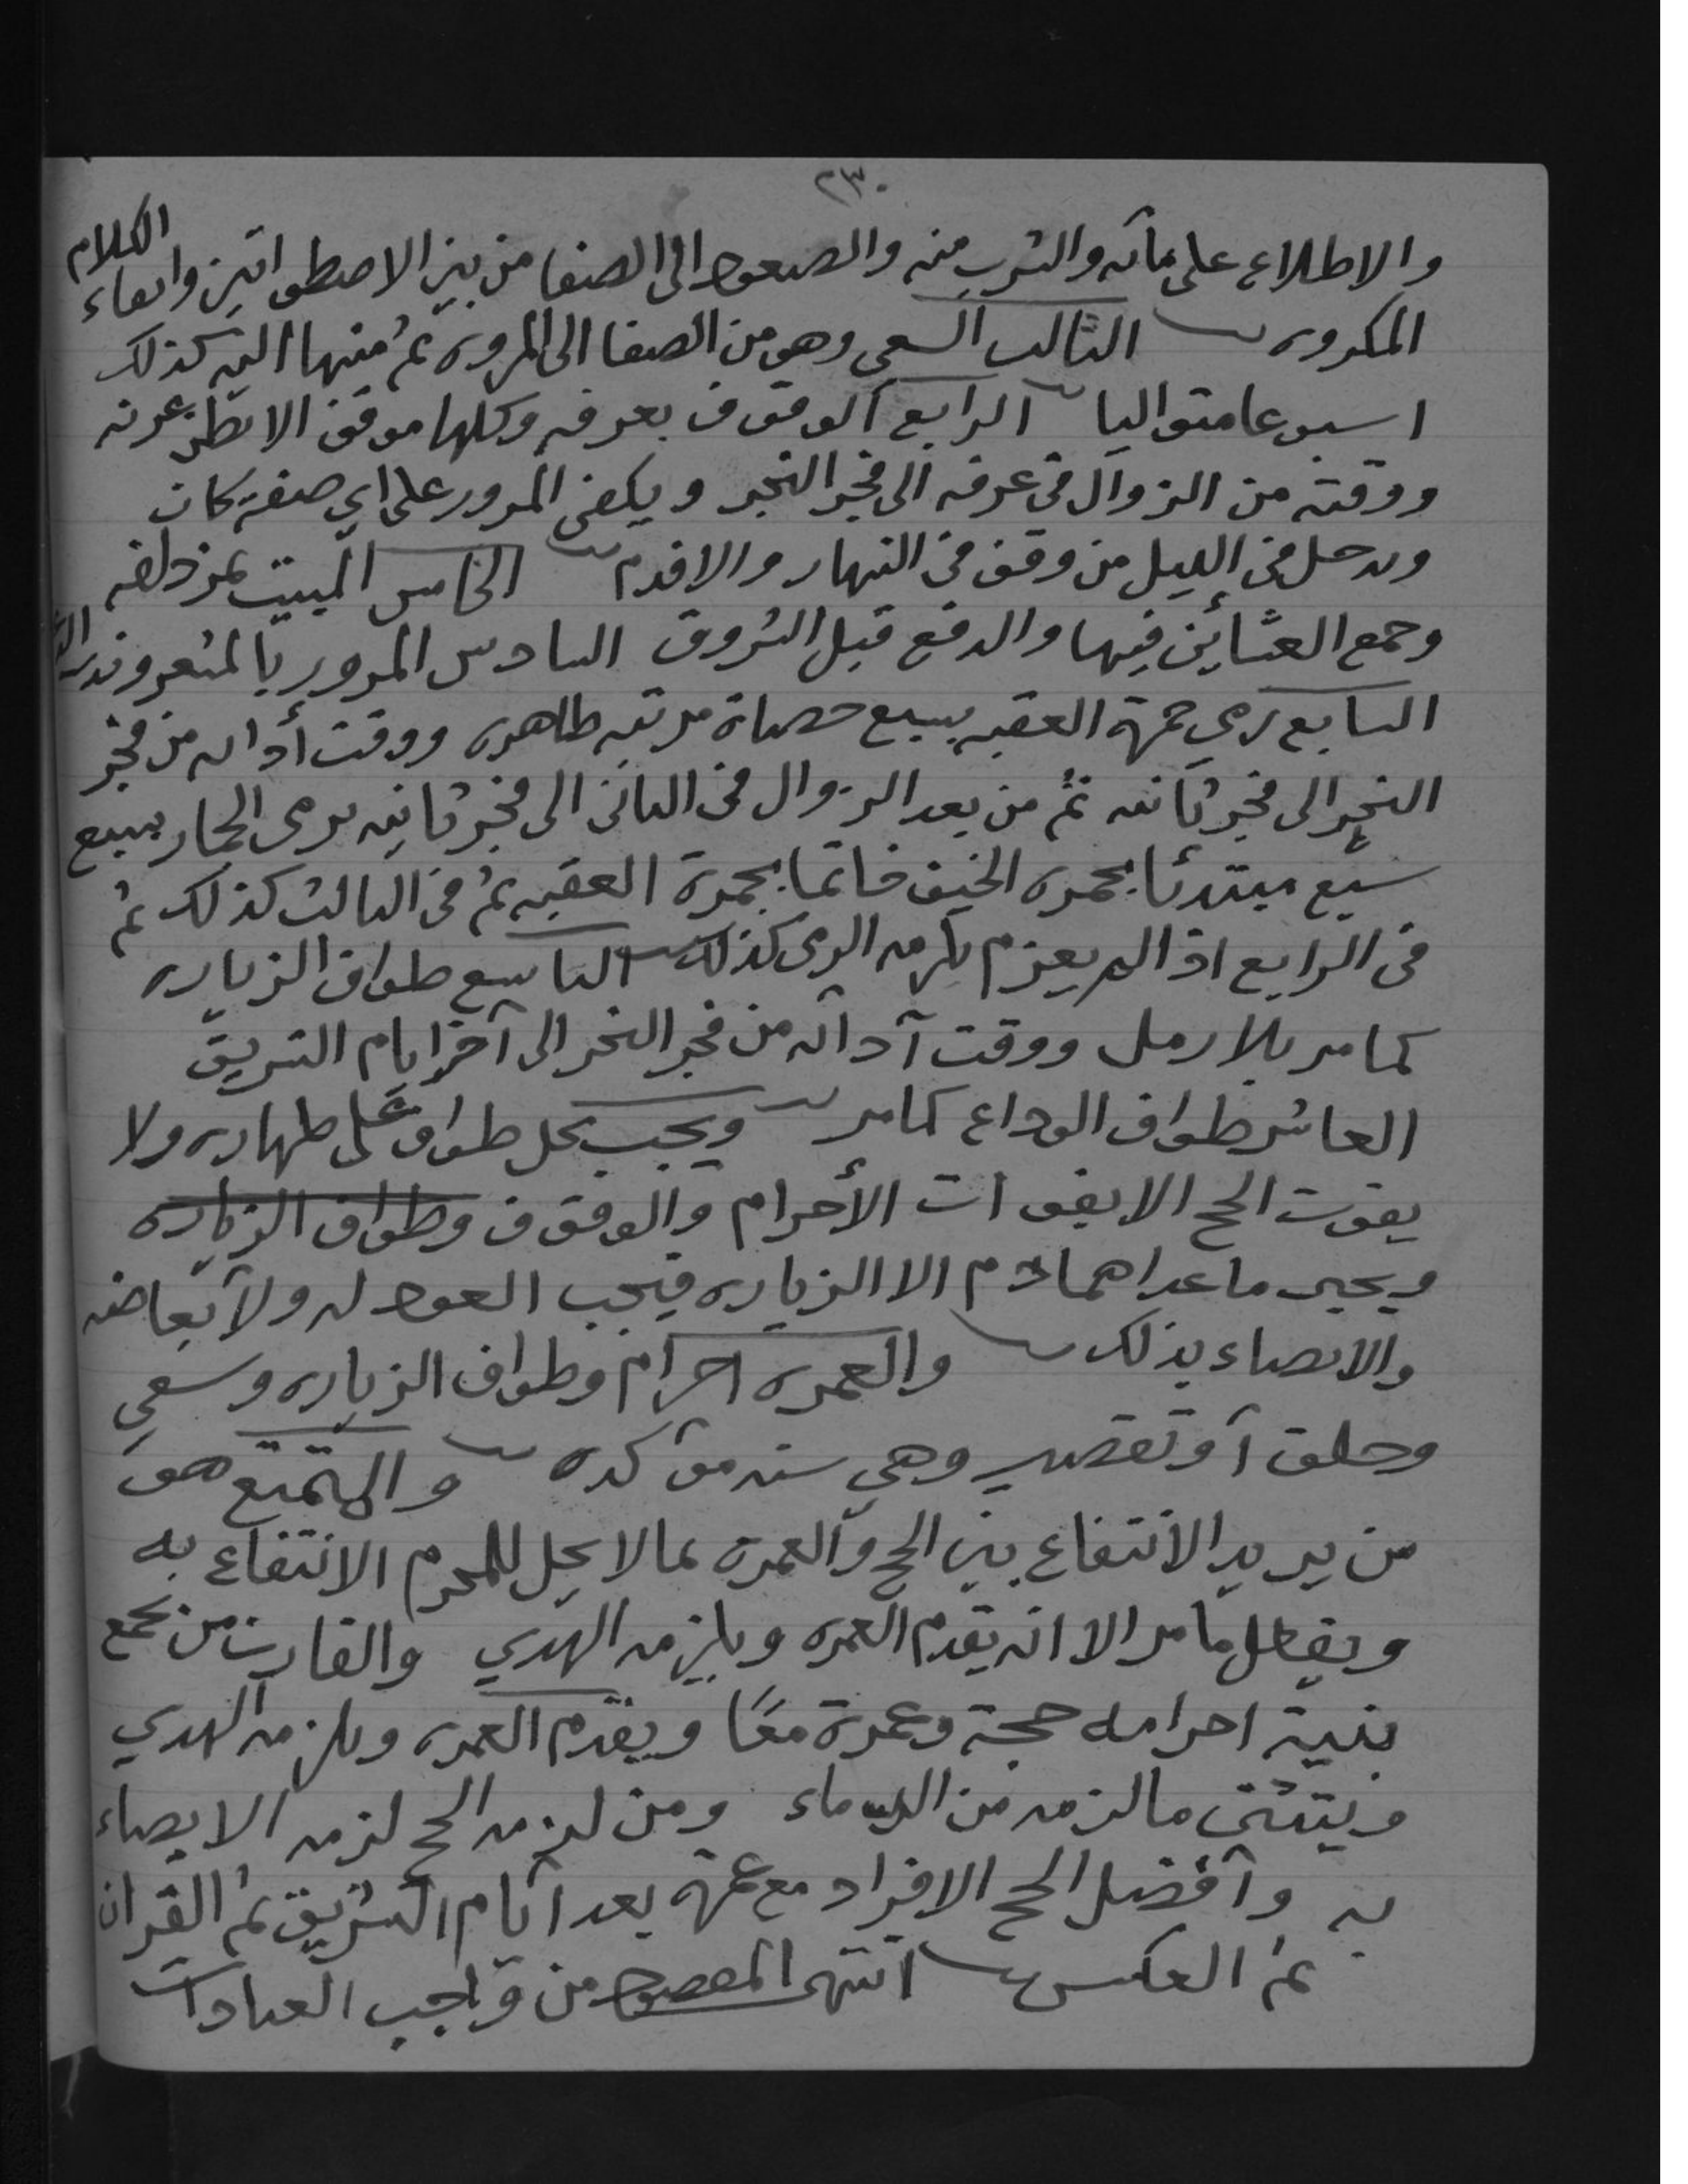 ٢٣٠
والاطلاع على مآئه والشرب منه والصعود الى الصفا من بين الاصطوانتين واتقاء الكلام
المكروه الثالث السعي وهو من الصفا الى المروه ثم منها اليه كذلك
اسبوعا متواليا الرابع الوقوف بعرفه وكلها موقف الا بطن عرنه
ووقته من الزوال في عرفه الى فجر النحر ويكفي المرور على اي صفة كان
ويدخل في الليل من وقف في النهار والا فدم الخامس المبيت بمزدلفه
وجمع العشائين فيها والدفع قبل الشروق السادس المرور بالمشعر وندب
السابع رمي جمرة العقبه بسبع حصاة مرتبه طاهره ووقت أدائه من فجر
النحر الى فجر ثانيه ثم من بعد الزوال في الثاني الى فجر ثانيه يرمى الجمار بسبع
سبع مبتدئا بجمره الخيف خاتما بجمرة العقبه ثم في الثالث كذلك ثم
في الرابع اذا لم يعزم يلزمه الرمى كذلك التاسع طواف الزياره
كما مر بلا رمل ووقت آدائه من فجر النحر الى آخر ايام التشريق
العاشر طواف الوداع كما مر ويجب كل طواف على طهاره ولا
يفوت الحج الا بفوات الأحرام والوقوف وطواف الزياره
ويجبر ما عداهما دم الا الزياره فيجب العود له ولآبعاضه
والايصاء بذلك والعمره احرام وطواف الزياره وسعي
وحلق آو تقصير وهي سنه مؤكده والمتمتع هو
من يريد الانتفاع بين الحج والعمرة بما لا يحل للمحرم الانتفاع به
ويفعل ما مر الا انه يقدم العمره ويلزمه الهدي والقارن من يجمع
بنية احرامه حجة وعمرة معًا ويقدم العمره ويلزمه الهدي
ويتثنى ما لزمه من الدماء ومن لزمه الحج لزمه الايصاء
به وآفضل الحج الافراد مع عمرة بعد آيام التشريق ثم القران
ثم العكس انتهى المقصود من واجب العبادات